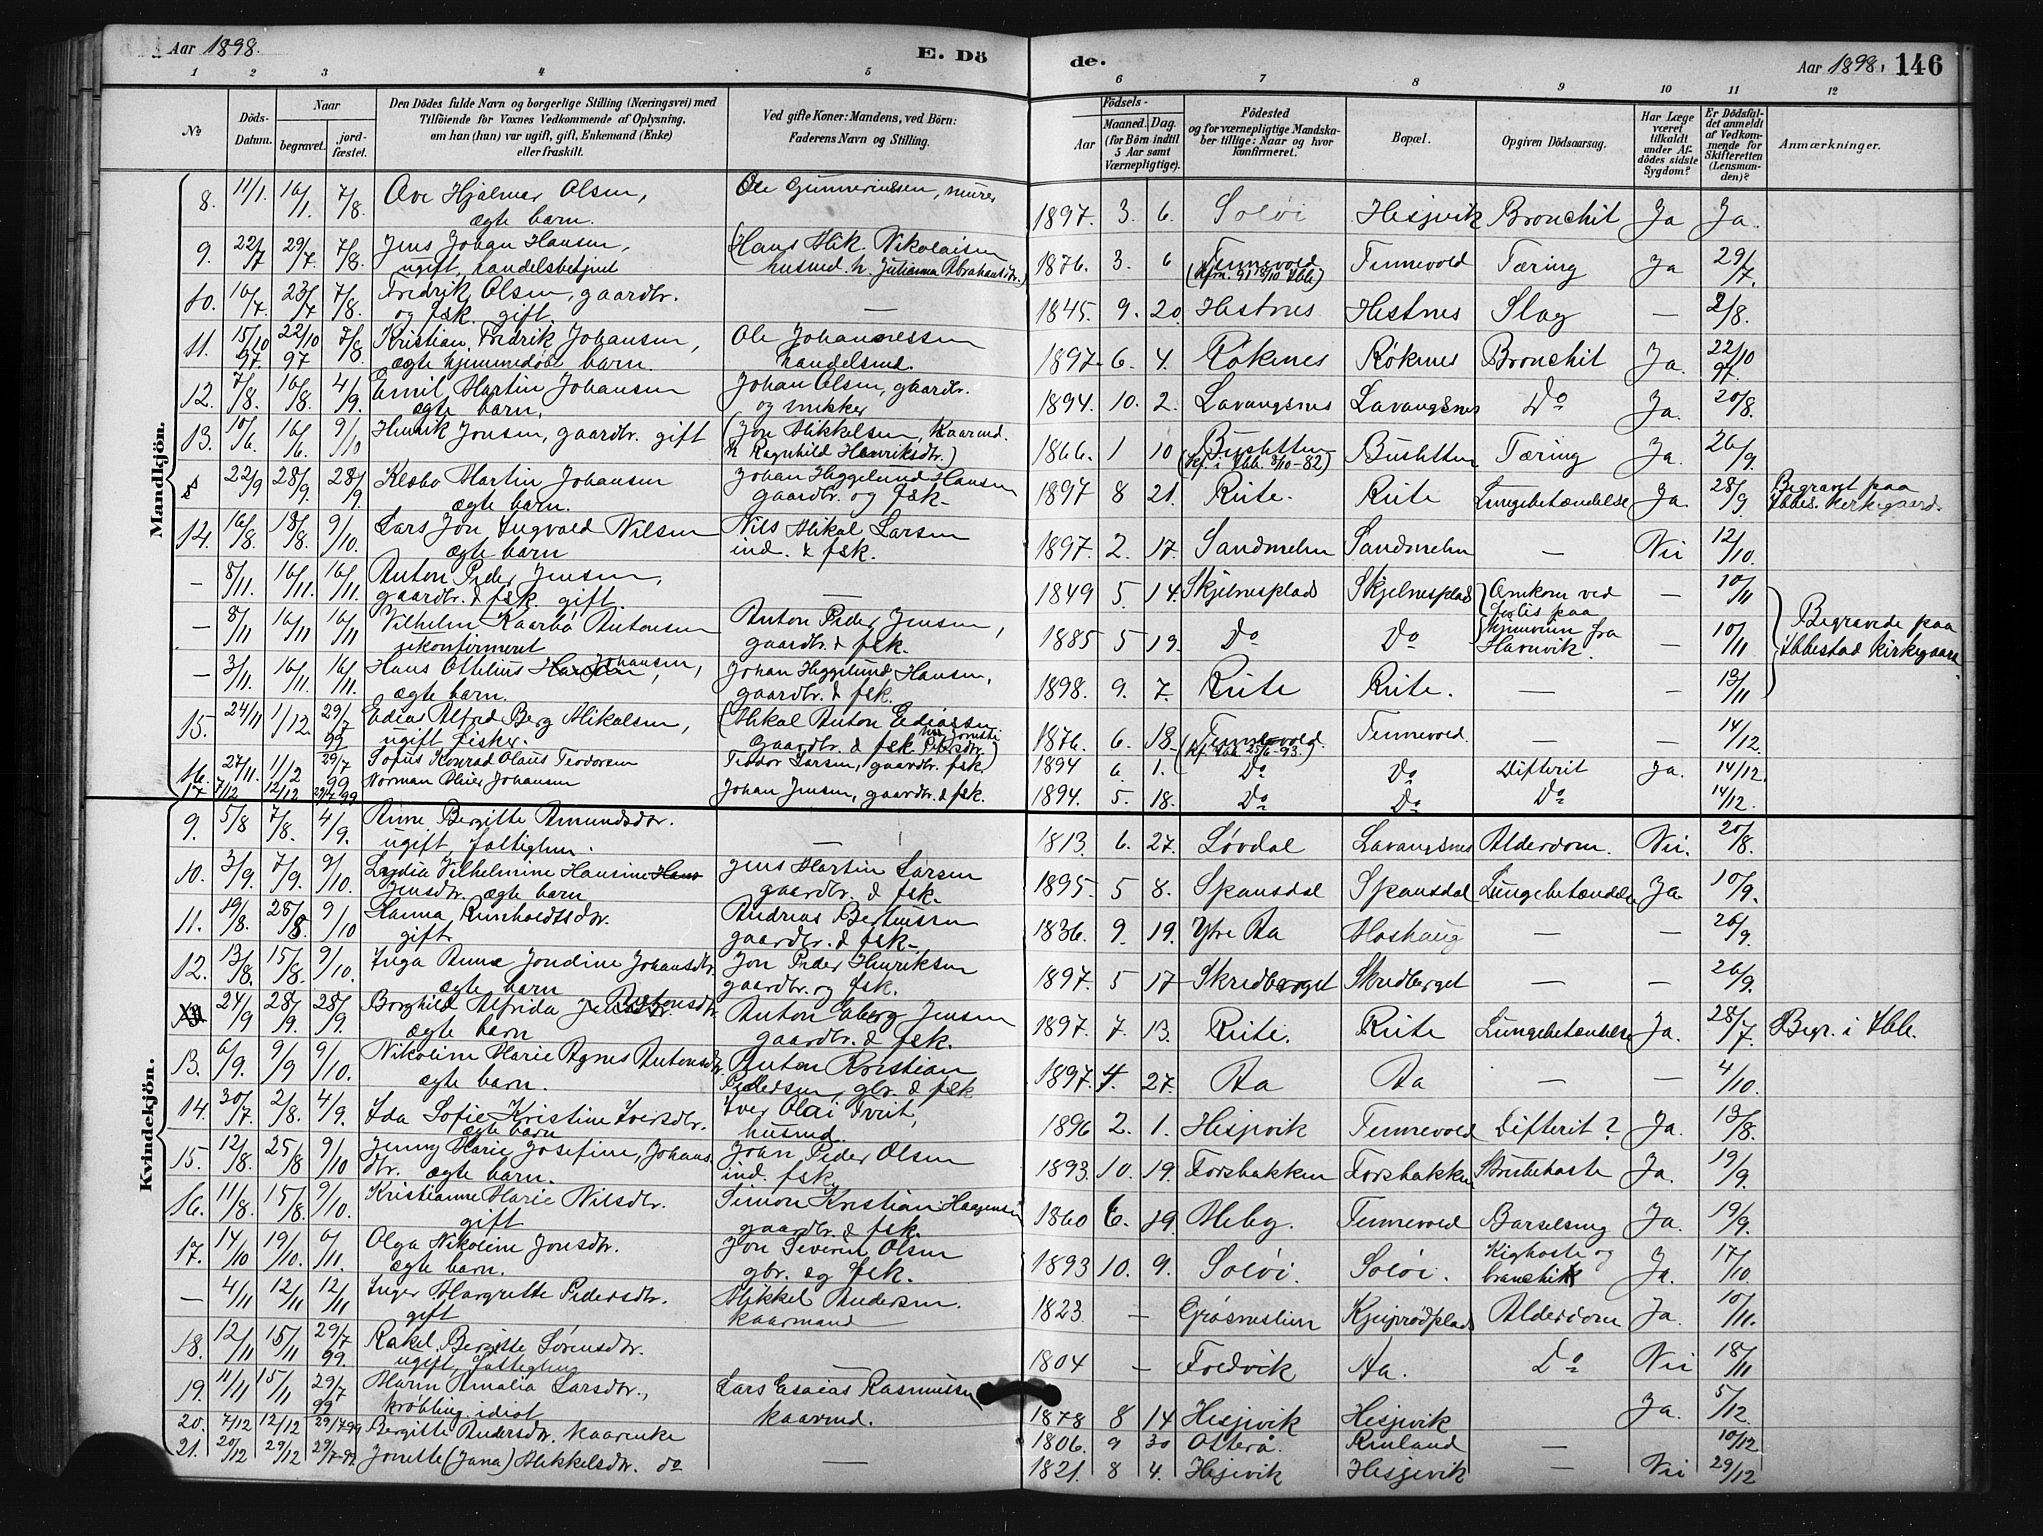 Aar 1898. E. Dö
de. Aar 1898. 146
1 2 3 4 5
6 7 8 9 10 11 12
№ Döds-Datum. Naar begravet. jord-fæstet. Den Dödes fulde Navn og borgerlige Stilling (Næringsvei) med Tilföiende for Voxnes Vedkommende af Oplysning, om han (hun) var ugift, gift, Enkemand (Enke) eller fraskilt. Ved gifte Koner: Mandens, ved Börn: Faderens Navn og Stilling.
Födsels- Aar Maaned. Dag. (for Börn indtil 5 Aar samt Værnepligtige). Födested og for værnepligtige Mandskaber tillige: Naar og hvor konfirmeret. Bopæl. Opgiven Dödsaarsag. Har Læge været tilkaldt under Afdödes sidste Sygdom? Er Dödsfaldet anmeldt af Vedkommende for Skifteretten (Lensmanden)? Anmærkninger.
Mandkjön.
8. 11/1. 16/1. 7/8. Ove Hjalmar Olsen, ægte barn. Ole Gunneriussen, murer 1897. 3. 6. Soløi Hesjevik Bronchit Ja Ja.
9. 22/7 29/7. 7/8. Jens Johan Hansen, ugift, handelsbetjent (Hans Mik. Nikolaisen husmd. h. Julianna Abrahamsdtr.) 1876. 3. 6 Tennevold Tennevold Tæring Ja 29/7.
10. 16/7. 23/7 7/8. Fredrik Olsen, gaardbr. og fsk. gift. — 1845. 9. 20. Hestnes Hestnes Slag — 2/8.
11. 15/10 97. 22/10 97 7/8. Kristian Fredrik Johansen, ægte hjemmedøbt barn. Ole Johannessen handelsmd. 1897. 6. 4. Røkenes Røkenes Bronchit Ja. 22/10 97.
12. 7/8. 16/8. 4/9. Emil Martin Johansen ægte barn. Johan Olsen, gaardbr. og snekker 1894. 10. 2. Lavangsnes Lavangsnes Do Ja. 20/8.
13. 10/6. 16/6. 9/10 Henrik Jonsen, gaardbr. gift (Jon Mikkelsen, Kaarmd. h Ragnhild Henriksdtr.) 1866. 1 10 Busletten (kf. i Ibb. 8/10-82) Busletten Tæring Ja. 26/9.
22/9 28/9. 28/9. Klæbo Martin Johansen ægte barn. Johan Heggelund Hansen gaardbr. og fsk. 1897 8 21. Rute. Rute Lungebetændelse Ja. 28/9. Begravet paa Ibbes. kirkegaard.
14. 16/8. 18/8. 9/10. Lars Jon Ingvald Nilsen ægte barn Nils Mikal Larsen ind. & fsk. 1897. 2. 17. Sandmelen Sandmelen — Nei 12/10.
— 8/11. 16/11. 16/11. Anton Peder Jensen, gaardbr. & fsk. gift. — 1849 5. 14. Skjelnesplads Skjelnesplads Omkom ved forlis paa hjemveien fra Havnvik. — 10/11
— 8/11 16/11 16/11 Vilhelm Kaarbø Antonsen ukonfirmeret Anton Peder Jensen, gaardbr. & fsk. 1885 5 19. Do Do — 10/11 Begravede paa Ibbestad kirkegaard
— 3/11. 16/11. 16/11. Hans Ottelius Johansen, ægte barn. Johan Heggelund Hansen, gaardbr. & fsk. 1898. 9. 7. Rute Rute. — — 13/11
15. 24/11 1/12. 29/7 99 Edias Alfred Berg Mikalsen, ugift fisker. (Mikal Anton Ediassen gaardbr. & fsk. Pedersdtr.) 1876. 6. 18. Tennevold. (kf. Ibb. 25/6-93.) Tennevold. — — 14/12.
16. 27/11. 11/12 29/7 99 Sofus Konrad Olaus Teodorsen Teodor Larsen, gaardbr. fsk. 1894 6. 1. Do Do Difterit Ja. 14/12.
17. 7/12 12/12 29/7 99 Norman Oliver Johansen Johan Jensen, gaardbr. & fsk. 1894. 5. 18. Do Do Do 14/12.
Kvindekjön.
9. 5/8 7/8. 4/9. Anne Bergitte Amundsdtr. ugift, fattiglem. — 1813. 6. 27. Løvdal Lavangsnes Alderdom. Nei. 20/8.
10. 3/9. 7/9. 9/10. Lydia Vilhelmine Hansine Jensdtr. ægte barn Jens Martin Larsen gaardbr. & fsk. 1895. 5 8. Spansdal Spansdal Lungebetændelse Ja. 10/9.
11. 19/8. 28/8. 9/10 Hanna Reinholdtsdtr. gift Andreas Berteussen gaardbr. & fsk. 1836. 9. 19. Ytre Aa Moshaug — — 26/9.
12. 13/8. 15/8. 9/10. Inga Anna Jondine Johansdtr. ægte barn Jon Peder Henriksen gaardbr. og fsk. 1897. 5 17 Skredberget Skredberget — — 26/9.
24/9 28/9. 28/9. Borghild Alfrida Antonsdtr. ægte barn Anton Eberg Jensen gaardbr. & fsk. 1897. 7. 13. Rute. Rute Lungebetændelse Ja. 28/7. Begr. i Ibb.
13. 6/9. 9/9 9/10. Nikoline Marie Agnes Antonsdtr. ægte barn. Anton Kristian Pedersen, gbr. & fsk 1897. 4. 27. Aa Aa — — 4/10.
14. 30/7 2/8. 4/9. Ida Sofie Kristine Iversdtr. ægte barn Iver Olai Tveit, husmd. 1896 2. 1. Hesjevik Tennevold Difterit? Ja. 13/8.
15. 12/8. 25/8 9/10 Jenny Marie Josefine, Johansdtr. ægte barn. Johan Peder Olsen ind. fsk. 1893. 10. 19. Forsbakken Forsbakken Strubehoste Ja. 19/9.
16. 11/8. 15/8. 9/10. Kristianne Marie Nilsdtr. gift Simon Kristian Haagensen gaardbr. & fsk. 1860 6. 19. Meby. Tennevold Barselseng Ja. 19/9.
17. 14/10 19/10. 6/11 Olga Nikoline Jonsdtr. ægte barn. Jon Severin Olsen gbr. og fsk. 1893 10. 9. Soløi. Soløi. Kighoste og bronchit Ja. 17/10.
— 4/11 12/11 12/11 Inger Margrethe Pedersdtr. gift Mikkel Andersen. kaarmand 1823. — Grøsneslien Alderdom Ja. 10/11.
18. 12/11 15/11 29/7 99. Rakel Bergitte Sørensdtr. ugift, fattiglem 1804 — Fredvik Aa. Do Nei 18/11
19. 11/11 15/11 29/7 99 Maren Amalia Larsdtr., krøbling idiot Lars Esaias Rasmussen kaarmd. 1878 8 14 Hesjevik Hesjevik Ja. 5/12.
20. 7/12 12/12 29/7-99 Bergitte Andersdtr. kaarenke 1806. 9 30 Otterå. Renland — 10/12.
21. 20/12 29/12 29/7-99 Jonette (Jana) Mikkelsdtr. do — 1821. 8 4. Hesjevik Hesjevik — Nei 29/12